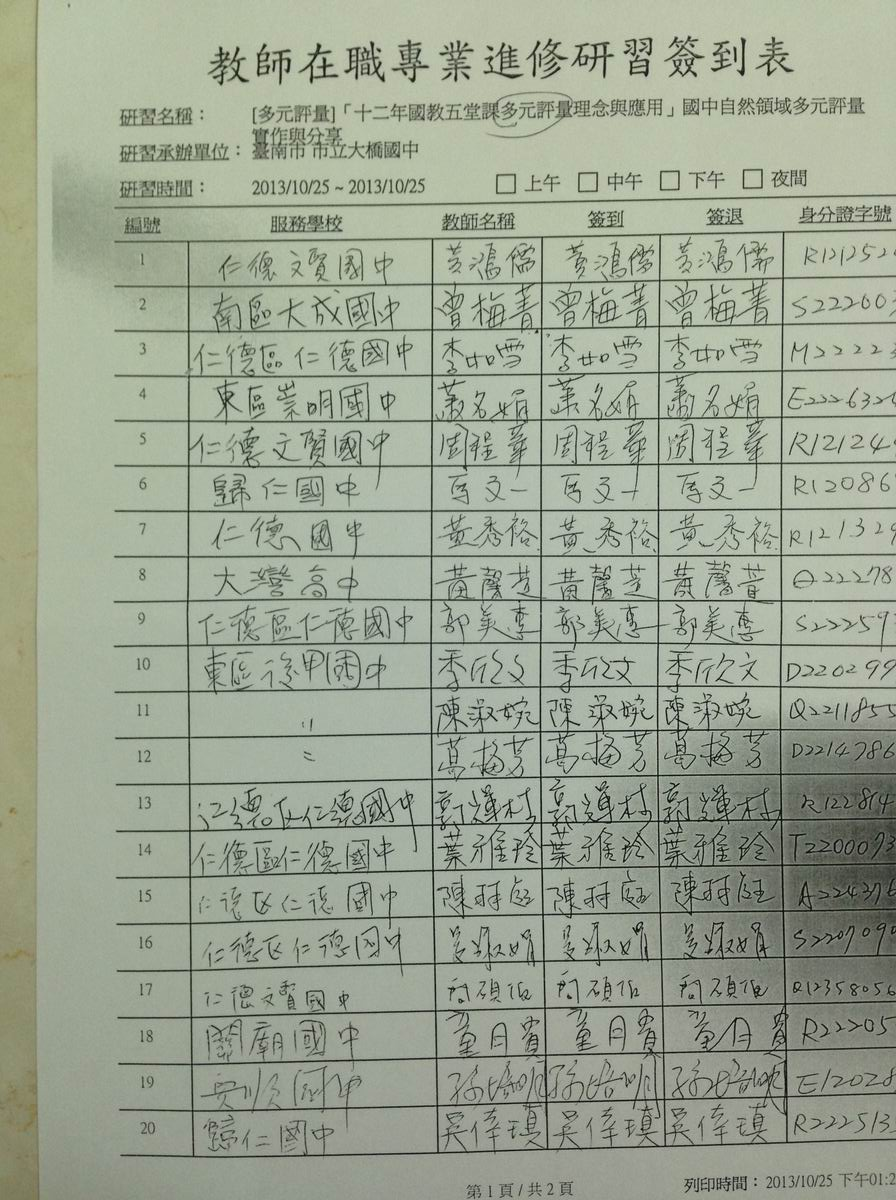 教師在職專業進修研習簽到表
研習名稱： [多元評量]「十二年國教五堂課多元評量理念與應用」國中自然領域多元評量
實作與分享
研習承辦單位： 臺南市 市立大橋國中
研習時間： 2013/10/25 ~ 2013/10/25 □ 上午 □ 中午 □ 下午 □ 夜間
編號 服務學校 教師名稱 簽到 簽退 身分證字號
1 仁德文賢國中 黃鴻儒 黃鴻儒 黃鴻儒 R121252
2 南區大成國中 曾梅菁 曾梅菁 曾梅菁 S22200
3 仁德區仁德國中 李如雪 李如雪 李如雪 M2222
4 東區崇明國中 蕭名娟 蕭名娟 蕭名娟 E222632
5 仁德文賢國中 周程華 周程華 周程華 R121244
6 歸仁國中 馬文一 馬文一 馬文一 R12086
7 仁德國中 黃秀裕 黃秀裕 黃秀裕 R12132
8 大灣高中 黃馨芝 黃馨芝 黃馨 Q22278
9 仁德區仁德國中 郭美惠 郭美惠 郭美惠 S22259
10 東區後甲國中 季欣文 季欣文 季欣文 D220299
11 〃 陳淑婉 陳淑婉 陳淑婉 Q2211855
12 〃 葛梅芳 葛梅芳 葛梅芳 D2214786
13 仁德区仁德國中 郭輝 郭輝 郭輝 R122814
14 仁德區仁德國中 葉雅玲 葉雅玲 葉雅玲 T2200093
15 仁德区仁德國中 陳 陳 陳 A224376
16 仁德区仁德国中 吴淑娟 吴淑娟 吴淑娟 S2209090
17 仁德文賢國中 碩伯 碩伯 碩伯 R12358056
18 關廟國中 童月貴 童月貴 童月貴 R22205
19 安順國中 孫培明 孫培明 孫培明 E12028
20 歸仁國中 吳倖瑱 吳倖瑱 吳倖瑱 R222513
第 1 頁 / 共 2 頁
列印時間：2013/10/25 下午01:2